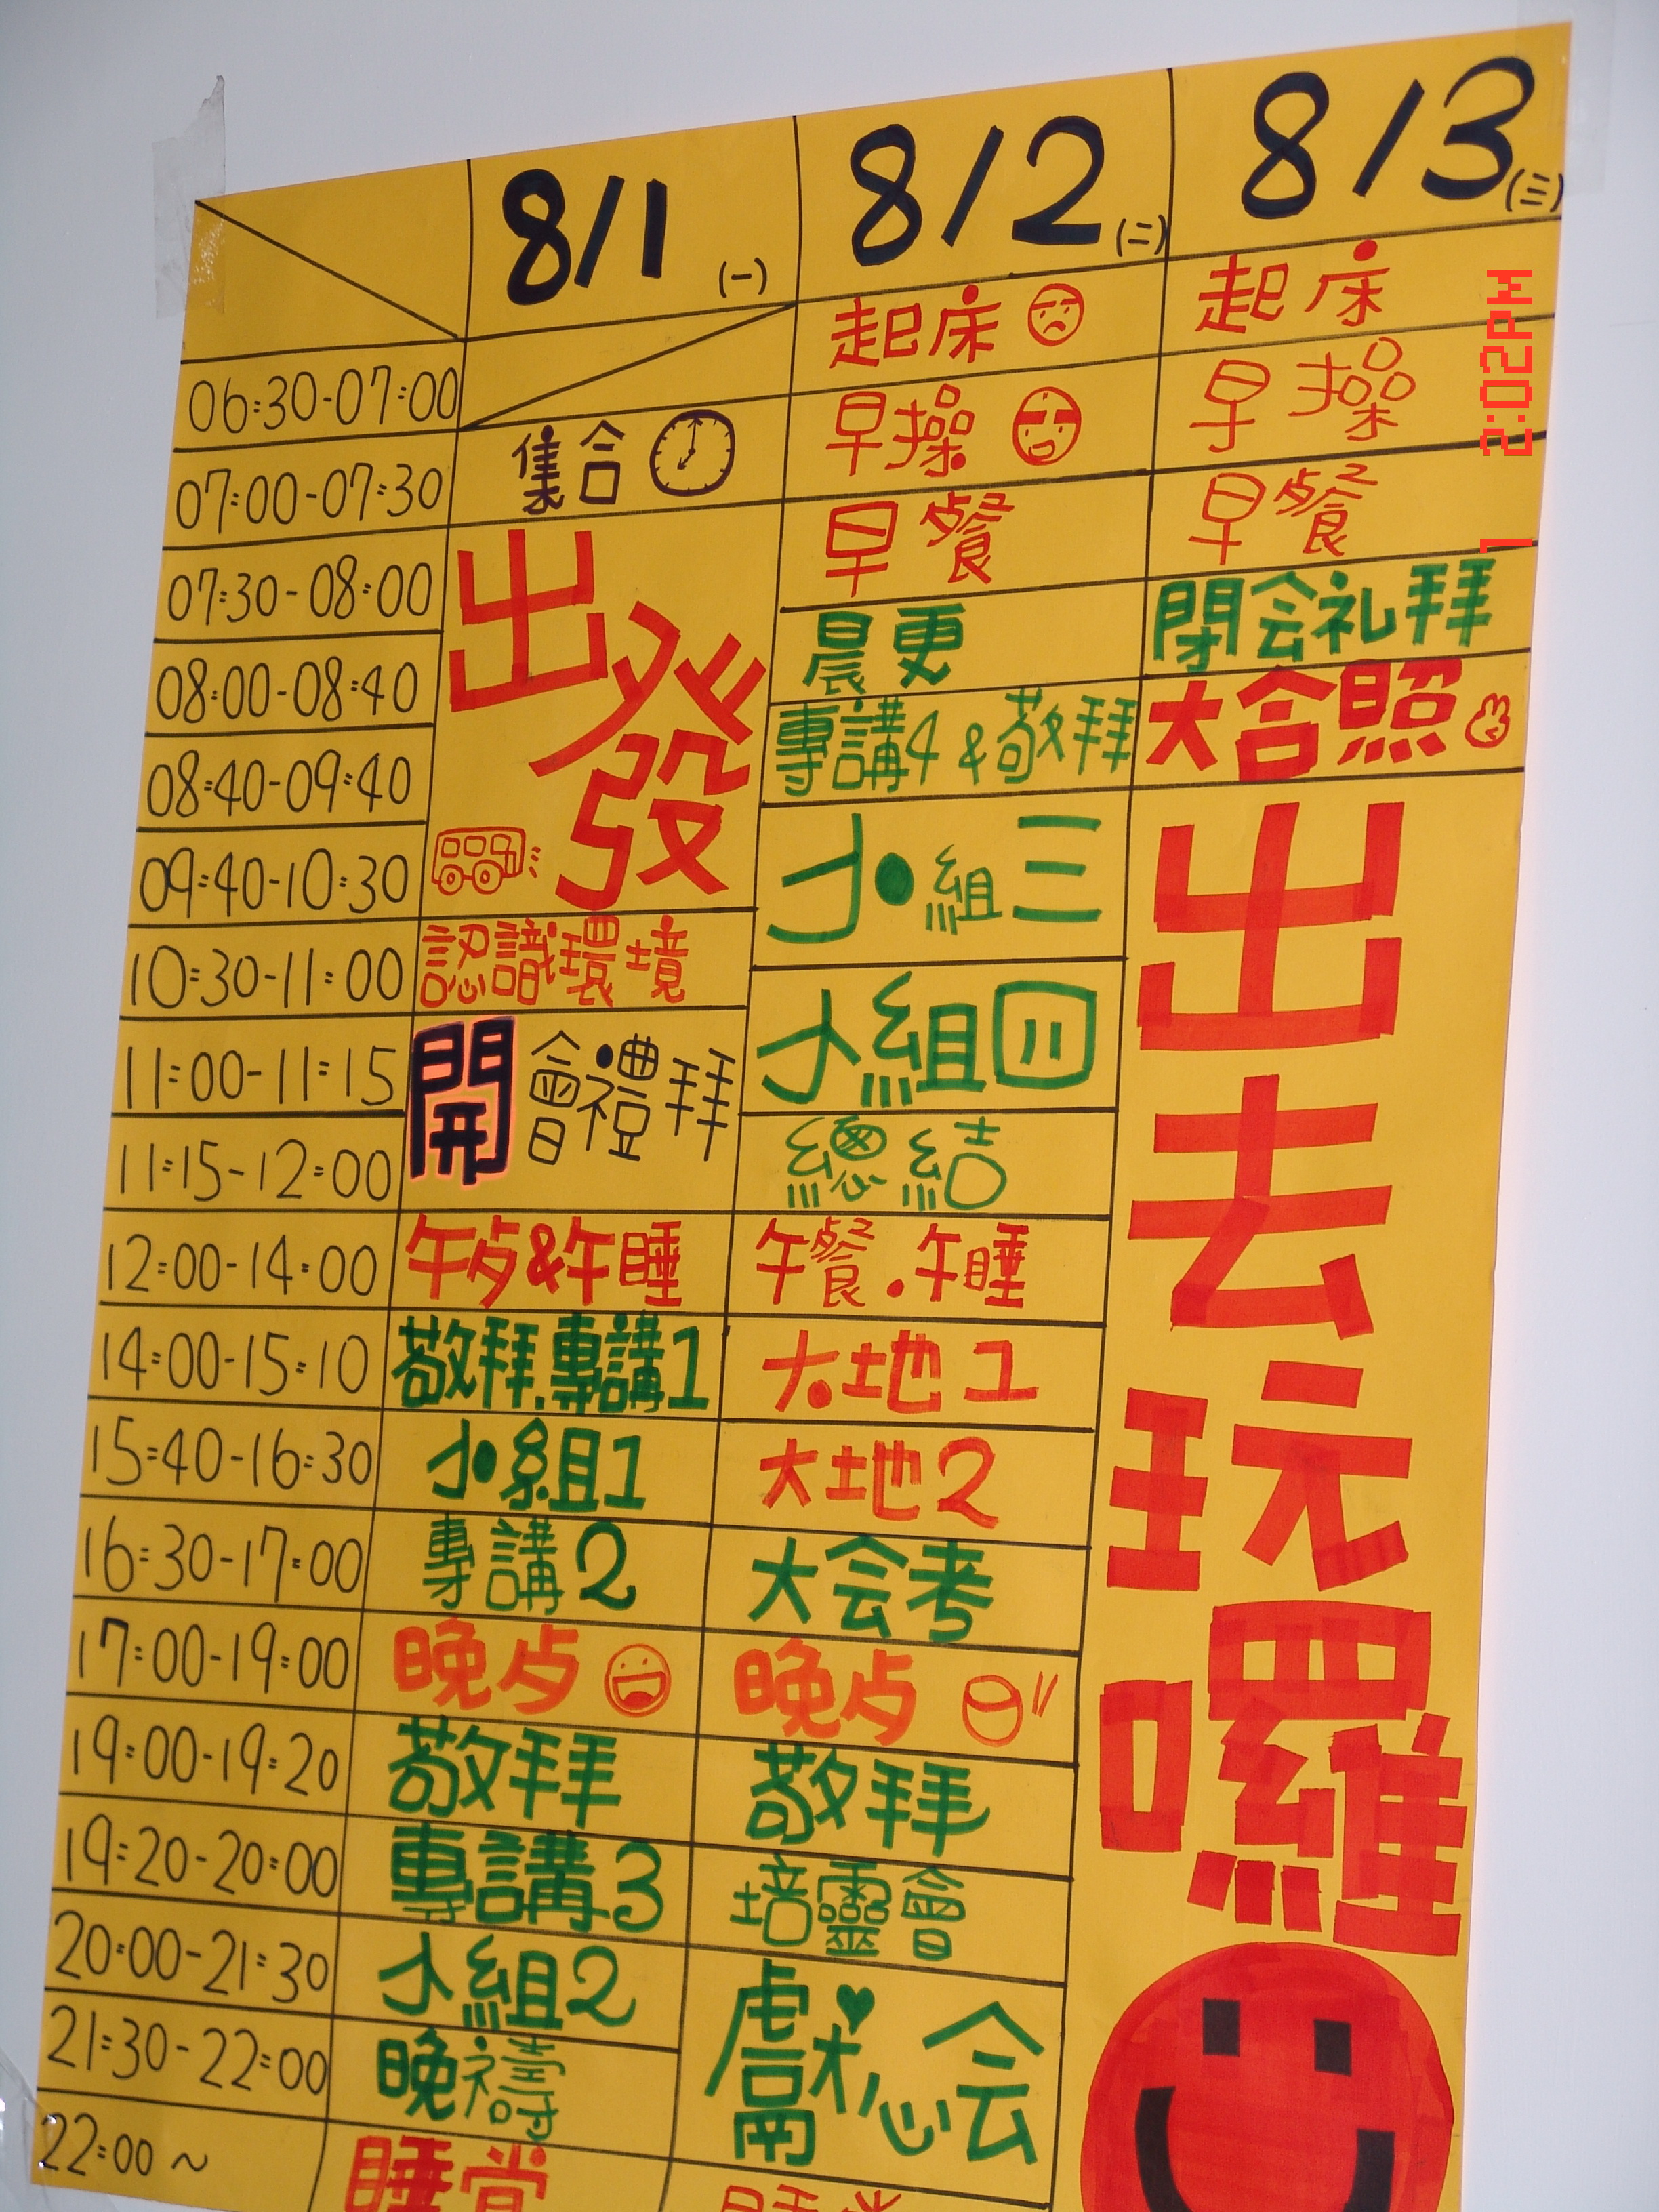 8/1 (一) 8/2 (二) 8/3 (三)
06:30-07:00 起床 起床
07:00-07:30 集合 早操 早操
07:30-08:00 出發 早餐 早餐
08:00-08:40 晨更 閉会礼拜
08:40-09:40 專講4 & 敬拜 大合照
09:40-10:30 小組三 出去玩囉
10:30-11:00 認識環境 小組四
11:00-11:15 開會禮拜
11:15-12:00 總結
12:00-14:00 午歺&午睡 午餐.午睡
14:00-15:10 敬拜.專講1 大地1
15:40-16:30 小組1 大地2
16:30-17:00 專講2 大会考
17:00-19:00 晚歺 晚歺
19:00-19:20 敬拜 敬拜
19:20-20:00 專講3 培靈會
20:00-21:30 小組2 獻心会
21:30-22:00 晚禱
22:00~ 睡覺